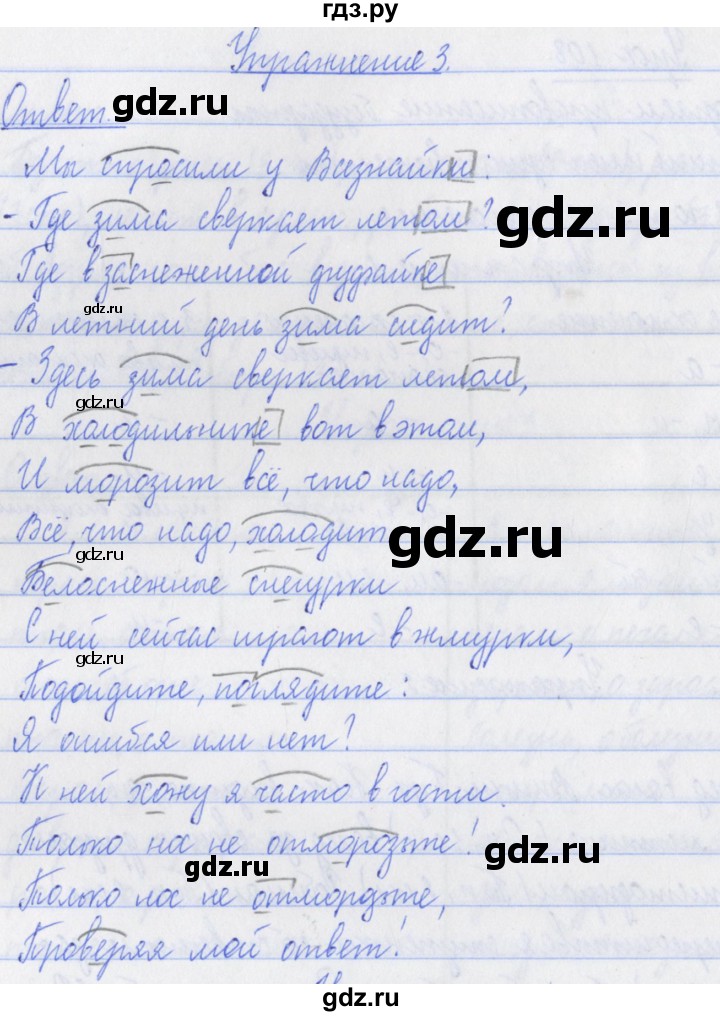 гдз.ру
Упражнение 3.
Ответ.
gdz.ru
Мы спросили у Всезнайки:
gdz.ru
- Где зима сверкает летом?
gdz.ru
Где в заснеженной фуфайке
В летний день зима сидит?
gdz.ru
- Здесь зима сверкает летом,
gdz.ru
В холодильнике вот в этом,
И морозит всё, что надо,
Всё, что надо, холодит.
gdz.ru
gdz.ru
Белоснежные снегурки
С ней сейчас играют в жмурки,
gdz.ru
Подойдите, поглядите:
Я ошибся или нет?
К ней хожу я часто в гости.
Только нос не отморозьте!
gdz.ru
gdz.ru
Только нос не отморозьте,
Проверяя мой ответ!
gdz.ru